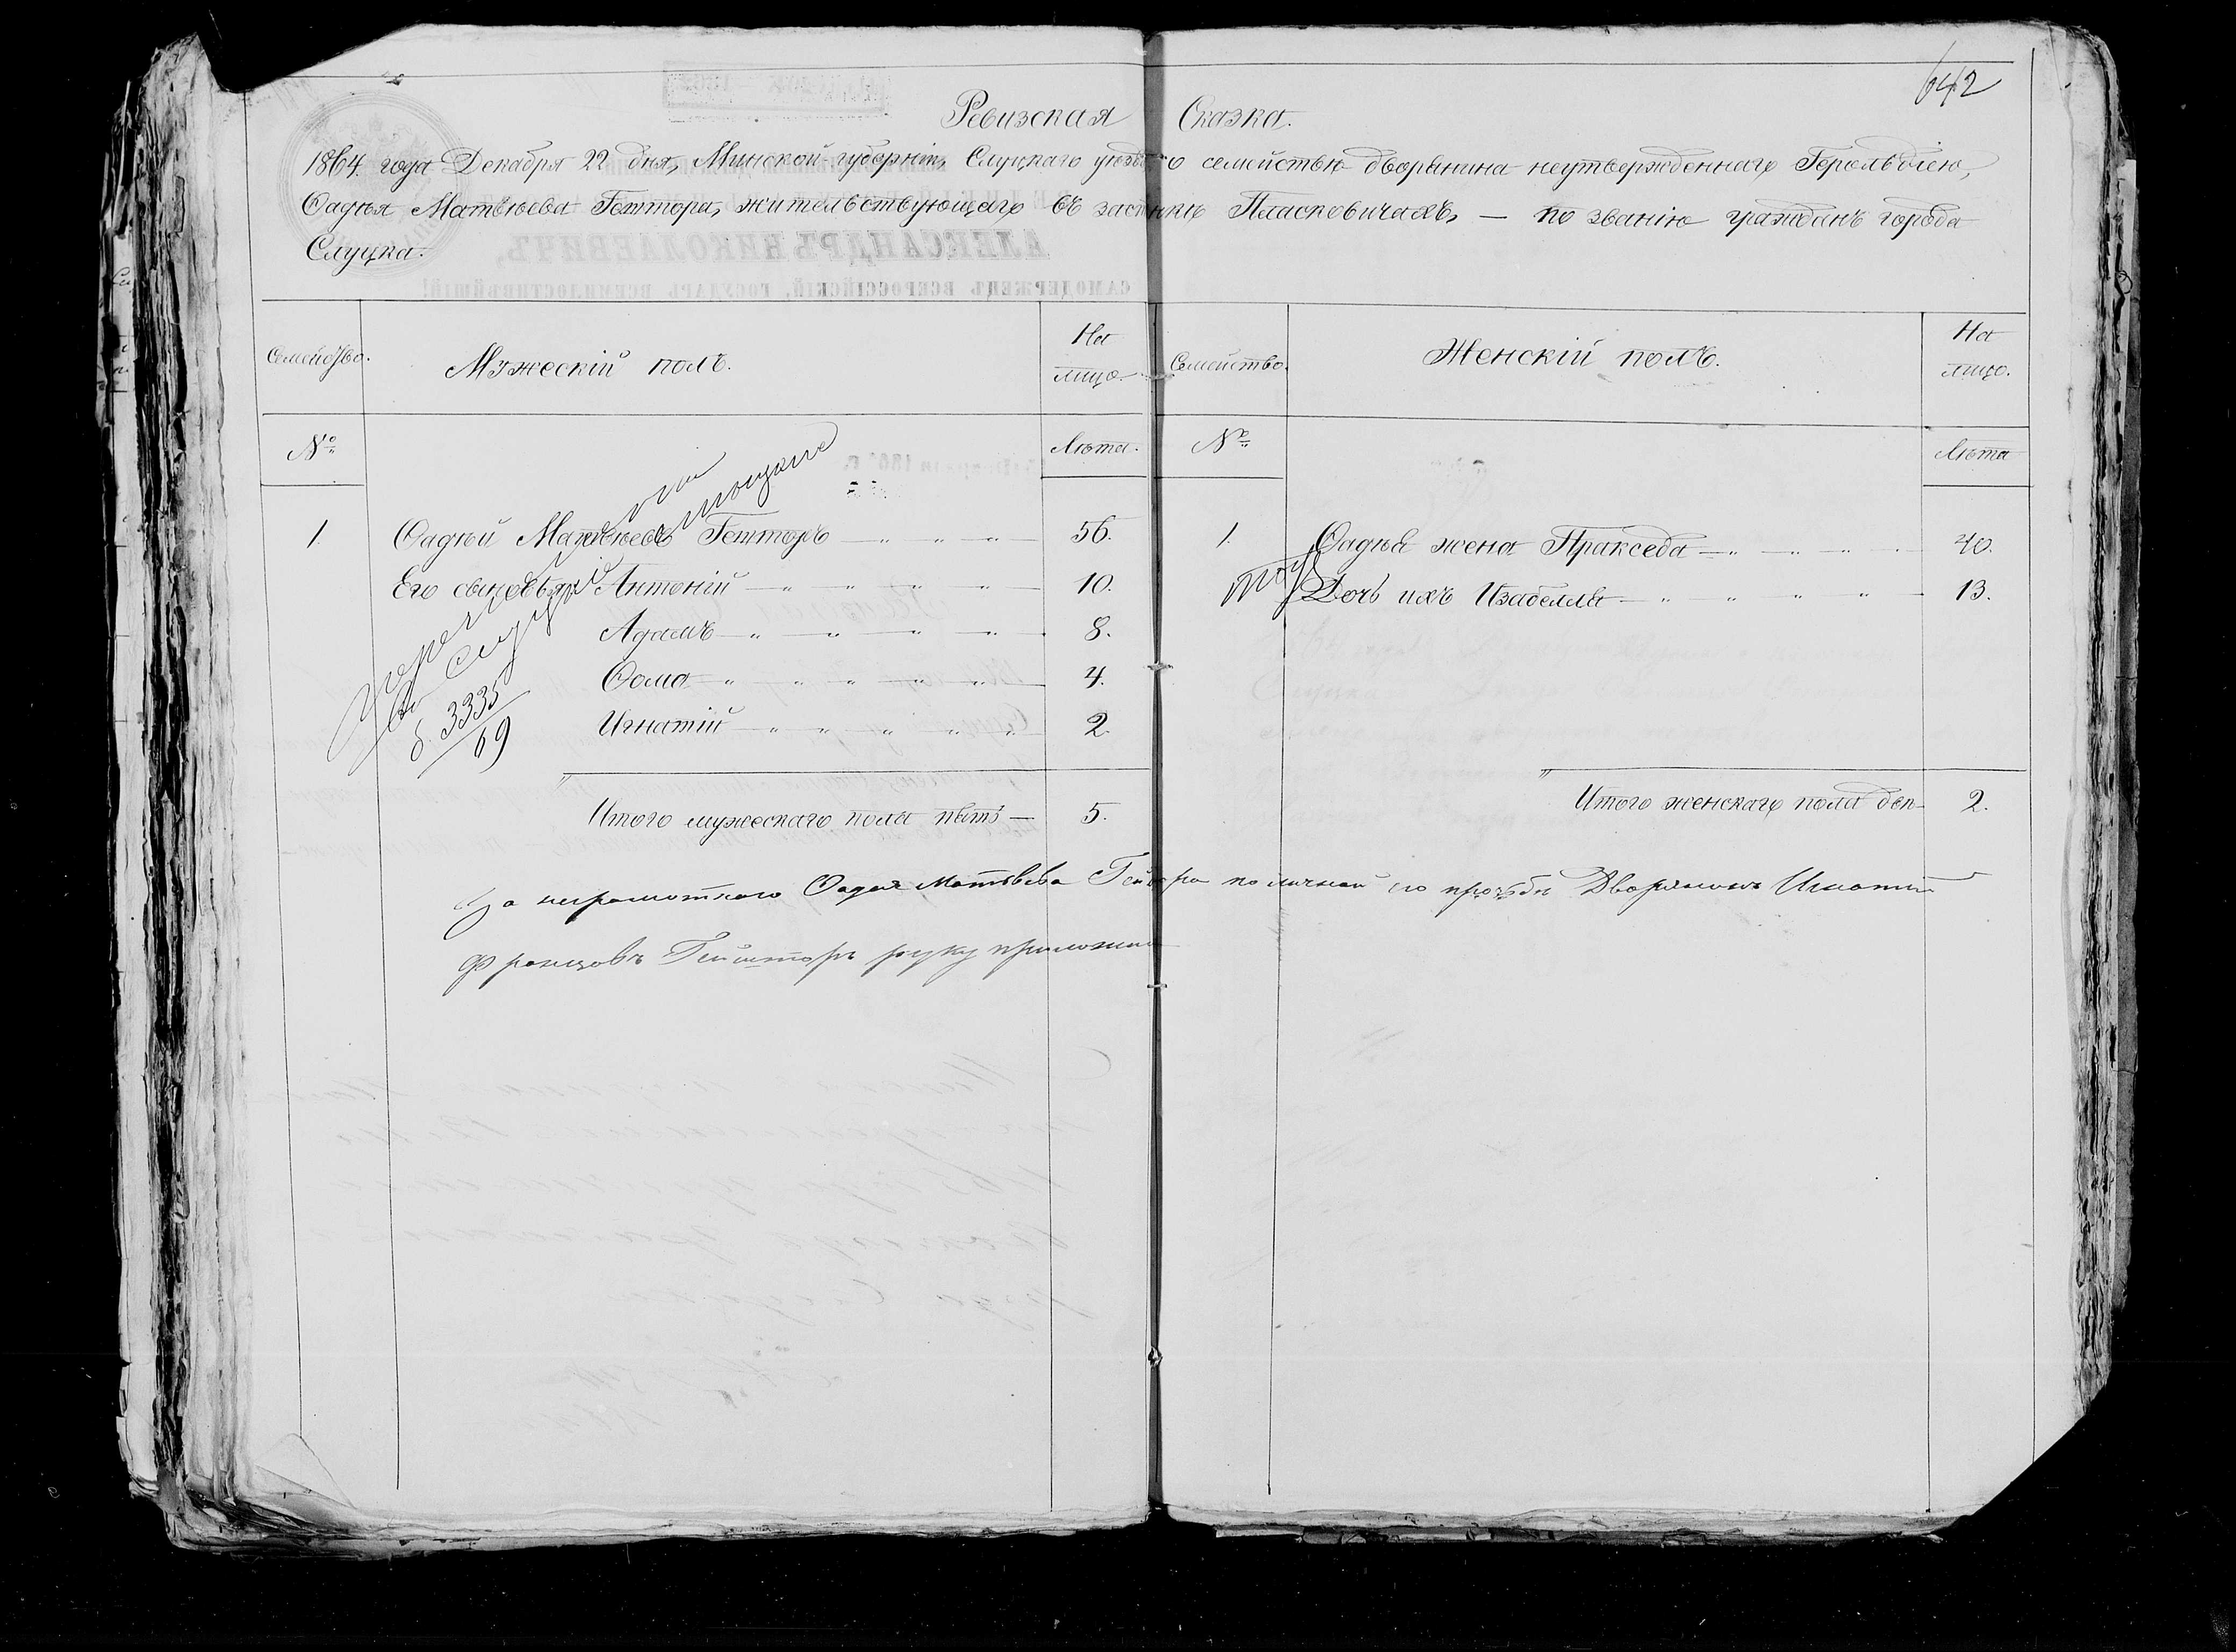 642
Ревизская Сказка.
1864 года Декабря 22 дня, Минской губерніи, Слуцкаго уѣзднаго семействѣ дворянина неутвержденнаго Герольдіею,
Ѳадѣя Матвѣева Гештора, жительствующаго въ застѣнкѣ Пласковичахъ, — по званію гражданъ города
Слуцка.
Семейство. Мужескій полъ. На лицо. Семейство. Женскій полъ. На лицо.
№ Лѣта. № Лѣта
1. Ѳадѣй Матвѣевъ Гешторъ 56. 1. Ѳадѣя жена Праксeда 40.
Его сыновья: Антоній 10. Дочь ихъ Изабелля 13.
Адамъ 8.
Ѳома 4.
Игнатій 2.
д. 3335
69
Итого мужескаго пола пять — 5. Итого женскаго пола двѣ 2.
За неграмотнаго Ѳадея Матвѣева Гейштора по личной его прозьбѣ Дворянинъ Игнатій
Францовъ Гейшторъ руку приложилъ
АЛЕКСАНДРЪ НИКОЛАЕВИЧЪ,
САМОДЕРЖЕЦЪ ВСЕРОССІЙСКІЙ, ГОСУДАРЬ ВСЕМИЛОСТИВѢЙШІЙ!